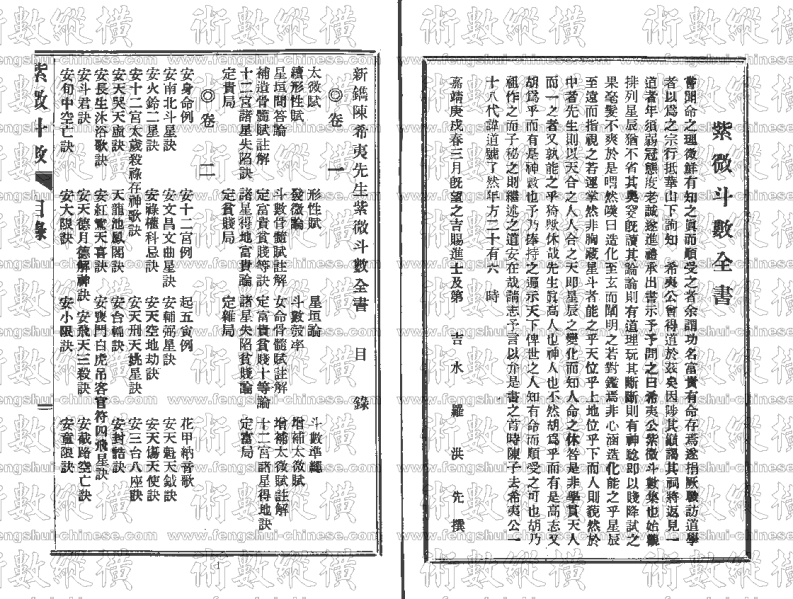 紫微斗數全書
嘗聞命之理微鮮有知之眞而順受之者余謂功名富貴有命存焉遂捐厥職訪道學
者以爲之宗行抵華山下詢知　希夷公曾得道於茲因陟其巓謁其祠將返見一
道者年須弱冠態度老誠遂進禮承出書示予予問之曰希夷公紫微斗數集也始觀
排列星辰猶不省其奧旣讀其論論則有道理玩其斷斷則有神即以賤降試之
果毫髮不爽於是喟然嘆曰造化至玄而闡明之若對鑑焉非心涵造化能之乎星辰
至遠而指視之若運掌然非胸藏星斗者能之乎天位乎上地位乎下而人則藐然於
中者先生則以天合之人人合之天即星辰之變化而知人命之休咎是非學貫天人
而一之者又孰能之乎猗歟休哉先生眞高人也神人也不然胡爲乎而有是高志又
胡爲乎而有是神數也予乃捧持之遍示天下俾世之人知有命而順受之可也胡乃
祖作之而子秘之則繼述之道安在哉請志予言以弁是書之首時陳子去希夷公一
十八代諱道號了然年方二十有六　時
嘉靖庚戌春三月旣望之吉賜進士及第　吉水　羅洪先　撰
新鐫陳希夷先生紫微斗數全書　目錄
◎卷一
太微賦　形性賦　星垣論　斗數準繩
續形性賦　發微論　斗數彀率　增補太微賦
星垣問答論　斗數骨髓賦註解　女命骨髓賦註解　增補太微賦註解
補遺骨髓賦註解　定富貴貧賤等訣　定富貴貧賤十等論　十二宮諸星得地訣
十二宮諸星失陷訣　諸星得地富貴論　諸星失陷貧賤論　定富局
定貴局　定貧賤局　定雜局
◎卷二
安身命例　安十二宮例　起五寅例　花甲納音歌
安南北斗星訣　安文昌文曲星訣　安輔弼星訣　安天魁天鉞訣
安火鈴二星訣　安祿權科忌訣　安天空地劫訣　安天傷天使訣
安十二宮太歲殺祿存神歌訣　安天刑天姚星訣　安三台八座訣
安天哭天虛訣　天龍池鳳閣訣　安台輔訣　安封誥訣
安長生沐浴歌訣　安紅鸞天喜訣　安喪門白虎吊客官符四飛星訣
安斗君訣　安天德月德解神訣　安飛天三殺訣　安截路空亡訣
安旬中空亡訣　安大限訣　安小限訣　安童限訣
紫微斗數　目錄　一
術數縱橫
www.fengshui-chinese.com